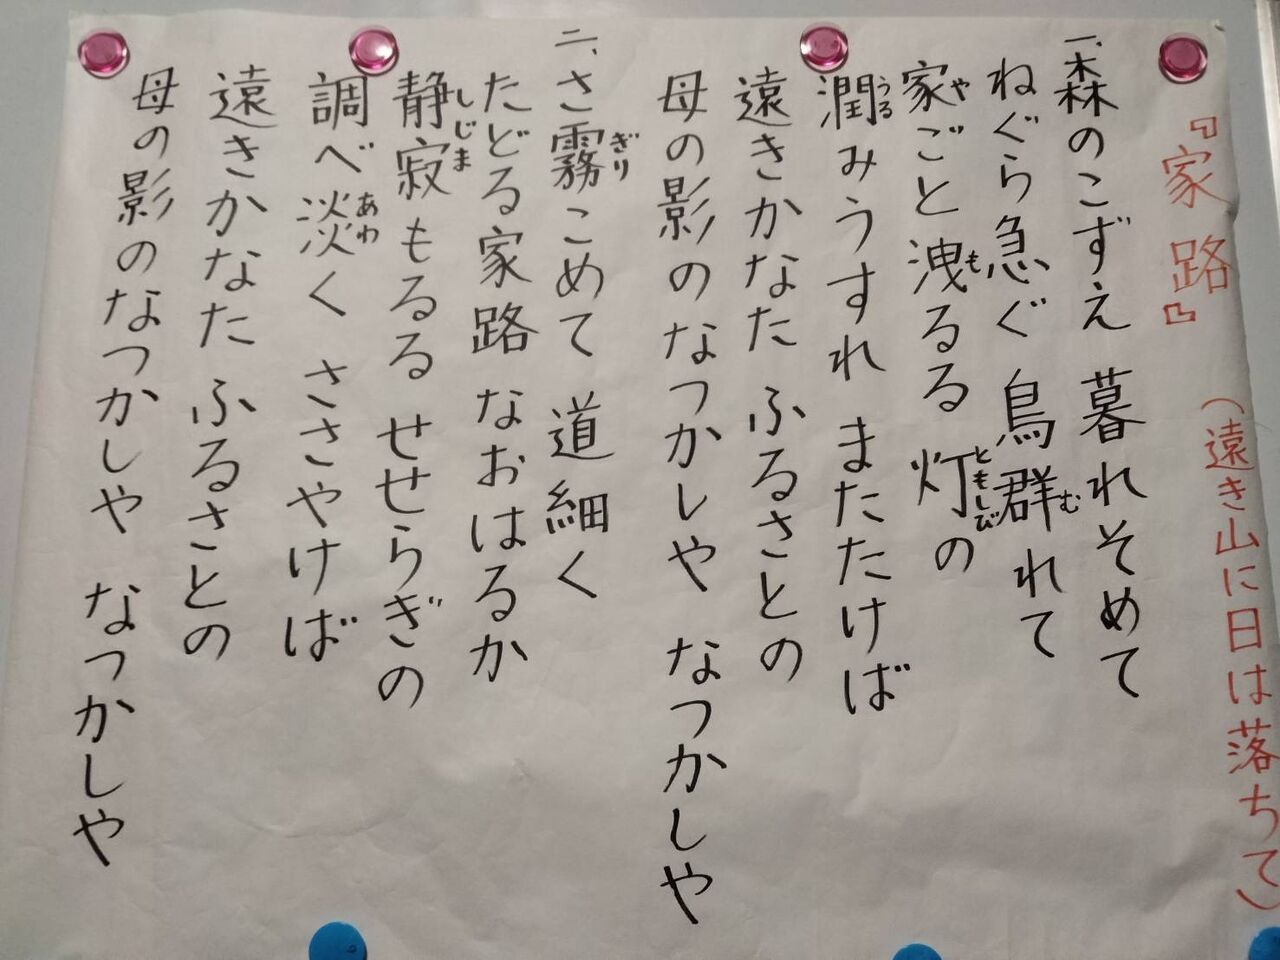 『家路』 (遠き山に日は落ちて)
一、森のこずえ 暮れそめて
ねぐら急ぐ 鳥群れて
む
家ごと洩るる 灯の
や も ともしび
潤みうすれ またたけば
うる
遠きかなた ふるさとの
母の影のなつかしや なつかしや
二、さ霧こめて 道細く
ぎり
たどる家路 なおはるか
静寂もるる せせらぎの
しじま
調べ淡く ささやけば
あわ
遠きかなた ふるさとの
母の影のなつかしや なつかしや